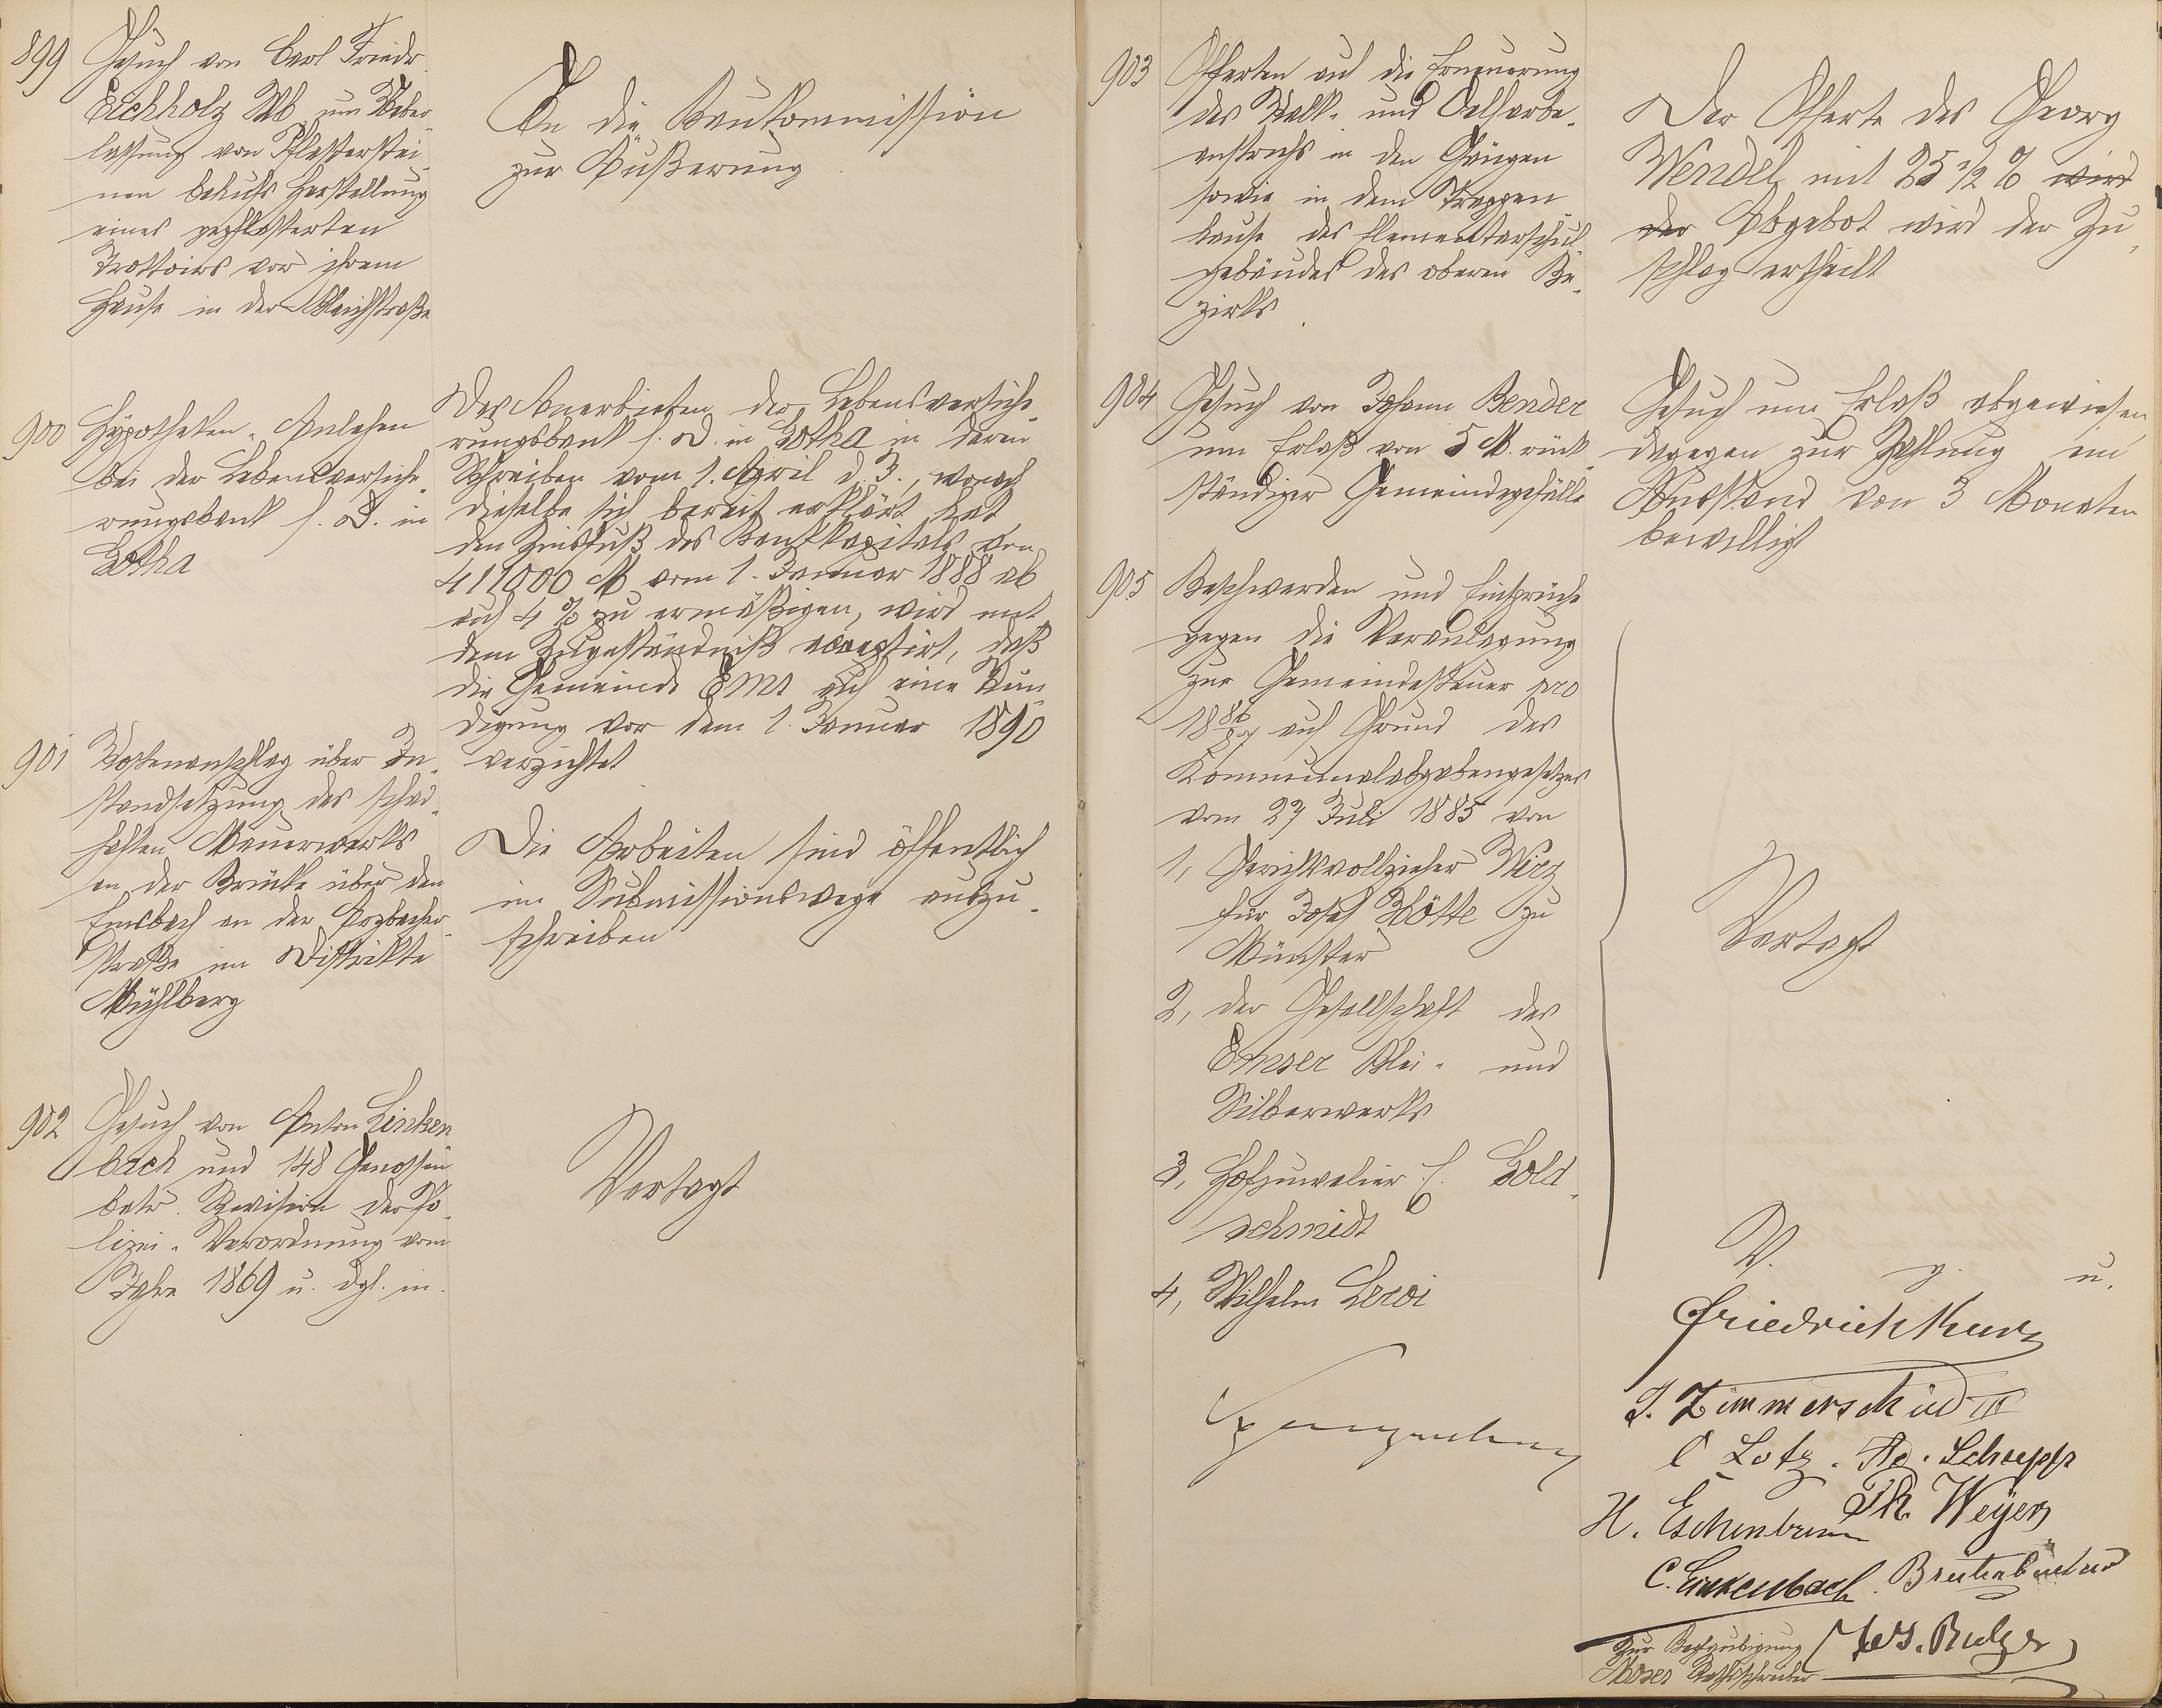 899
Gesuch von Carl Friedr.
Eichholz Wb. um Ueber-
lassung von Pflasterstei-
nen behufs Herstellung
eines gepflasterten
Trottoirs vor ihrem
Hause in der Bleichstraße
An die Baukommission
zur Äußerung
900
Hypotheken-Anlehen
bei der Lebensversiche-
rungsbank f. D. in
Gotha
Das Anerbieten der Lebensversiche-
rungsbank f. D. in Gotha in deren
Schreiben vom 1. April d. J., wonach
dieselbe sich bereit erklärt hat
den Zinsfuß des Bankkapitals von
411000 M vom 1. Januar 1888 ab
auf 4 % zu ermäßigen, wird mit
dem Zugeständniß acceptirt, daß
die Gemeinde Ems auf eine Kün-
digung vor dem 1. Januar 1890
verzichtet
901
Kostenanschlag über In-
standsetzung des schad-
haften Mauerwerks
an der Brücke über den
Emsbach an der Arzbacher-
straße im Distrikte
Mühlberg
Die Arbeiten sind öffentlich
im Submissionswege auszu-
schreiben
902
Gesuch von Anton Linken-
bach und 148 Genossen
betr. Revision der Po-
lizei-Verordnung vom
Jahre 1869 u. dgl. m.
Vertagt
903
Offerten auf die Erneuerung
des Kalk- und Oelfarbe-
anstrichs in den Gängen
sowie in dem Treppen
hause des Elementarschul
gebäudes des oberen Be-
zirks.
Der Offerte des Georg
Wendel mit 25 1/2 % wird
der Abgebot wird der Zu-
schlag ertheilt
904
Gesuch von Johann Bender
um Erlaß von 5 M. rück-
ständiger Gemeindegefälle
Gesuch um Erlaß abgewiesen,
dagegen zur Zahlung ein
Ausstand von 3 Monaten
bewilligt
905
Beschwerden und Einsprüche
gegen die Veranlagung
zur Gemeindesteuer pro
1886/87 auf Grund des
Kommunalabgabengesetzes
vom 27 Juli 1885 von
1, Gerichtsvollzieher Wirz
für Josef Hötte zu
Münster
2, der Gesellschaft des
Emser Blei- und
Silberwerks
3, Hofjuwelier E. Gold-
schmidt
4, Wilhelm Leroi
Vertagt
V. g. u.
Friedrich Kurz
J. Zimmerschied III
C Lotz. Ag. Schupp
H. Eschenbrenn Th Weyer
C. Linkenbach.
Zur Beglaubigung
Moses Rathsschreiber